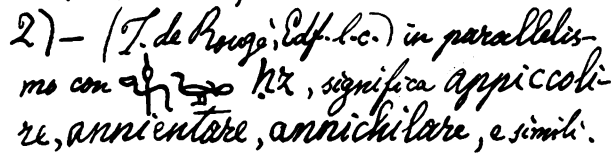 2) — (J. de Rougé, Edf. l. c.) in parallelis-
mo con , significa appiccoli-
re, annientare, annichilare, e simili.